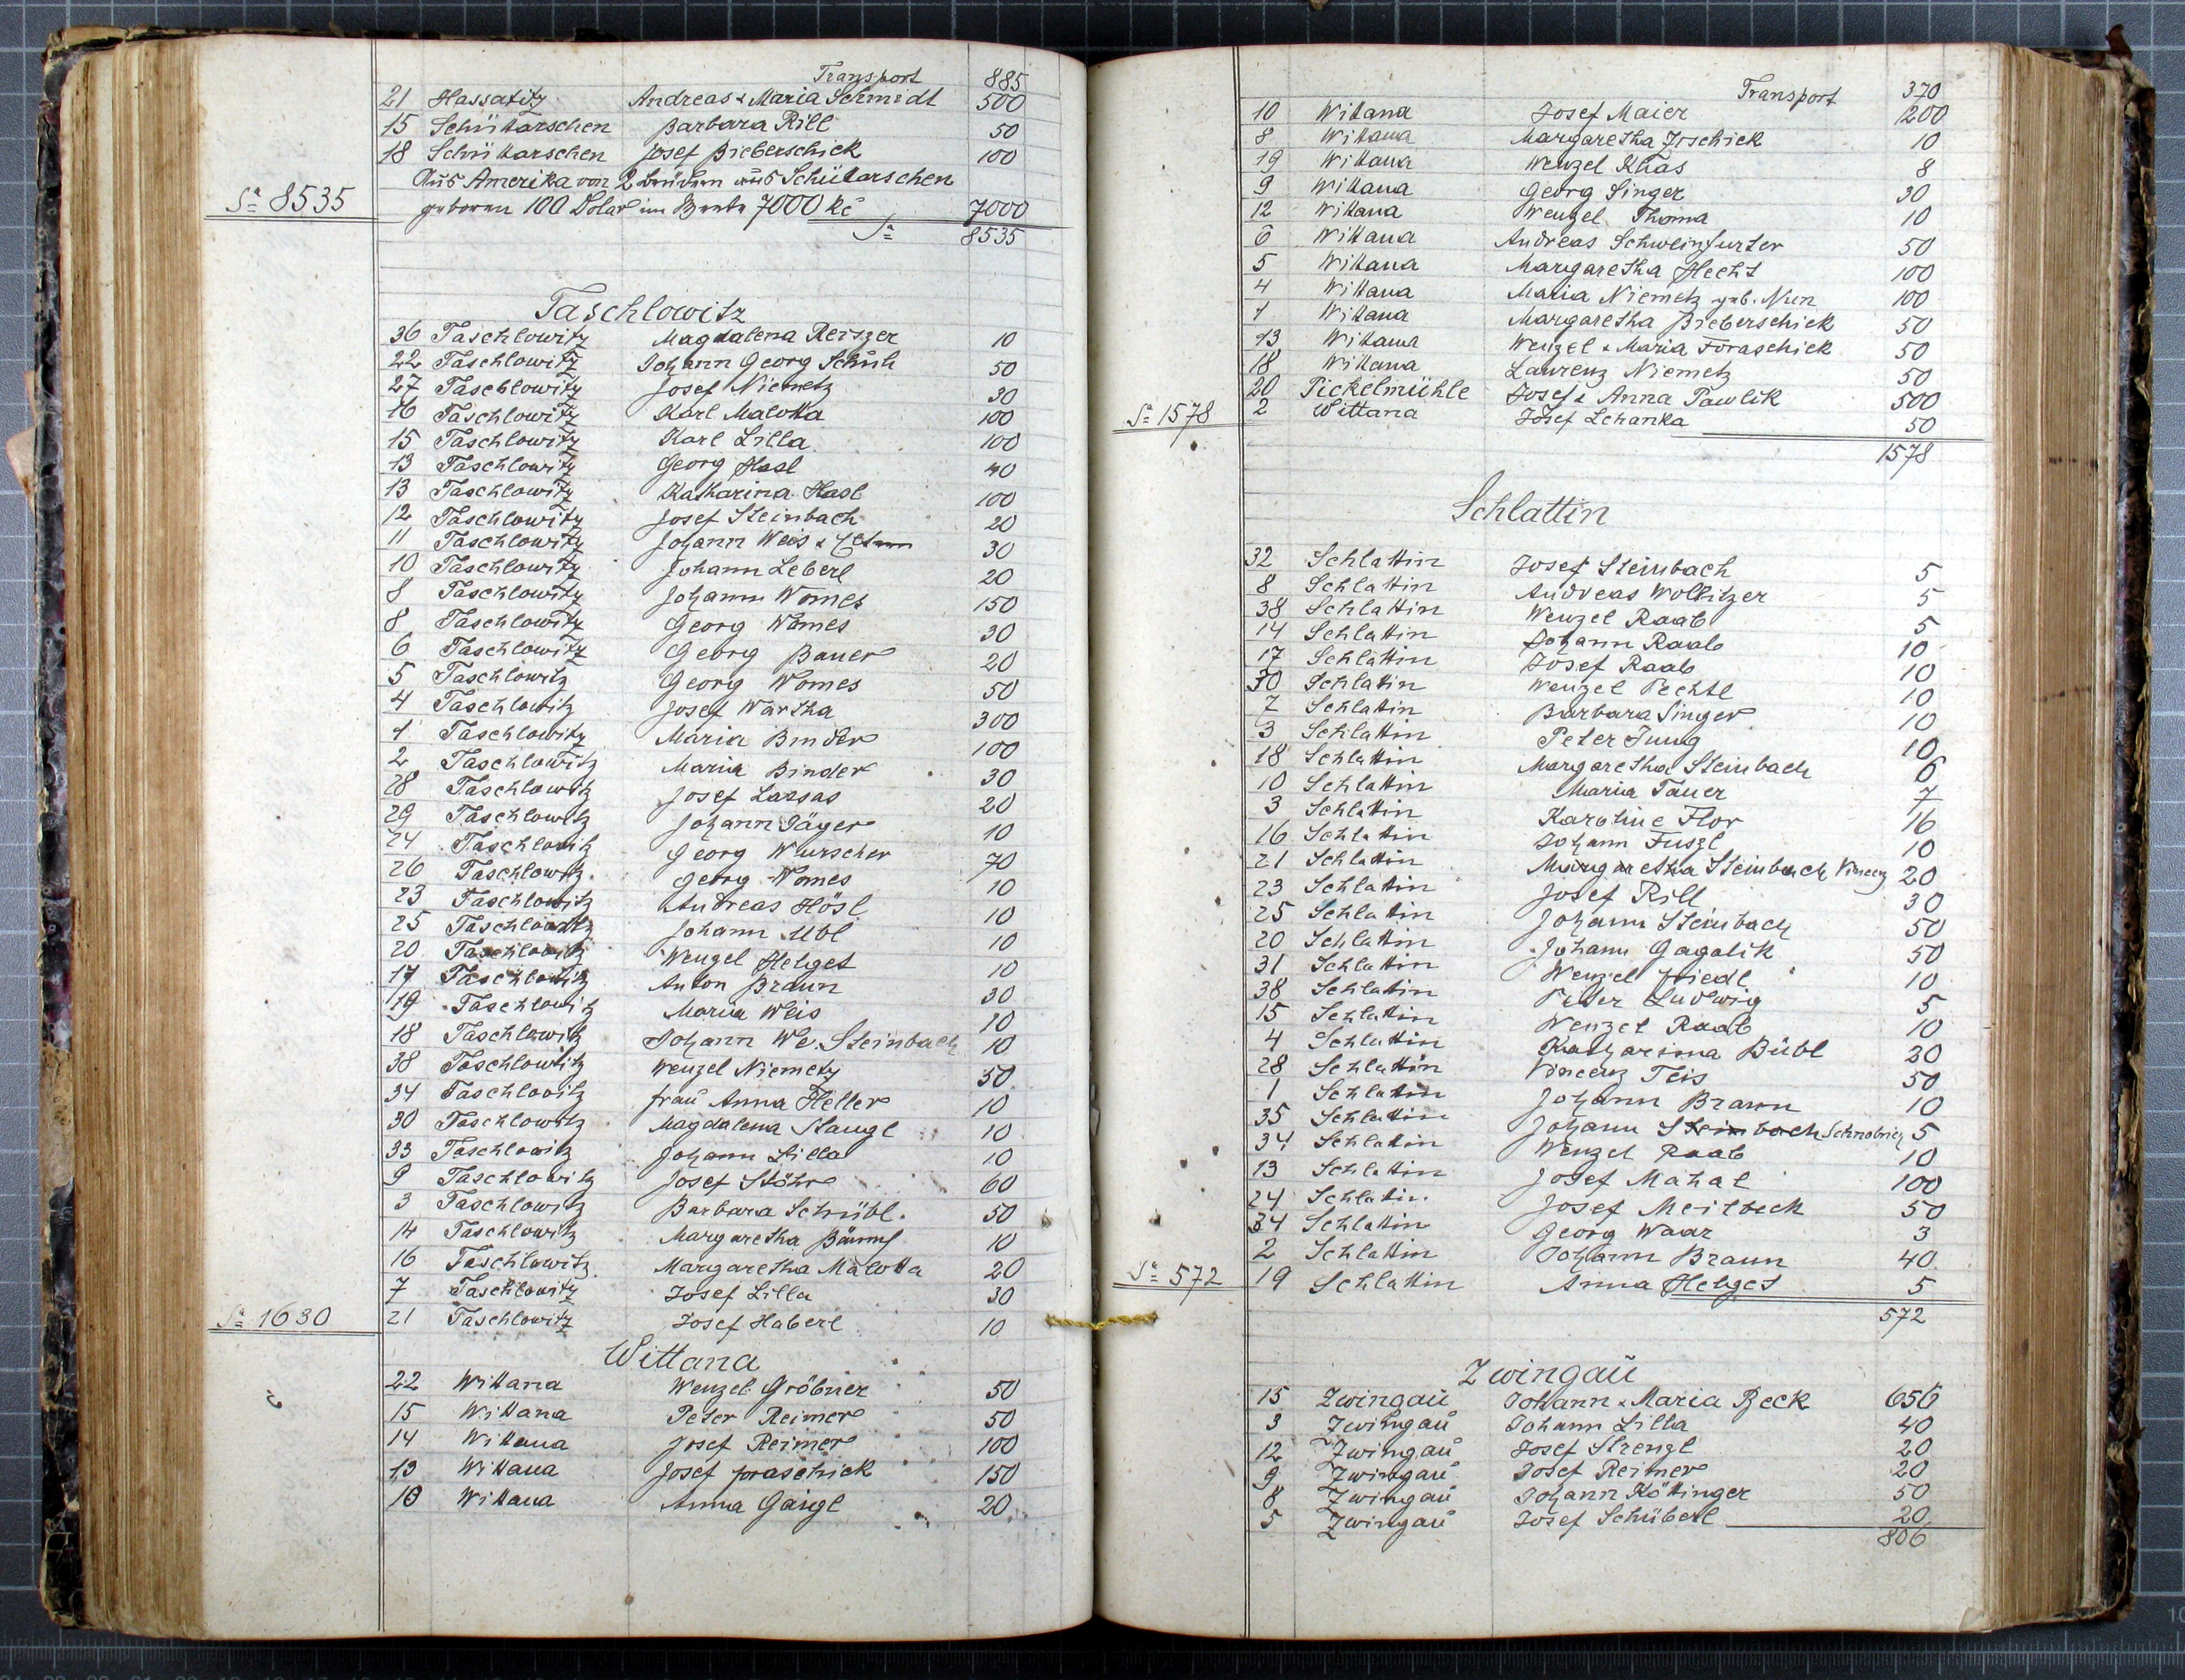 Transport 885
21 Hassatitz Andreas & Maria Schmidt 500
15 Schüttarschen Barbara Rill 50
18 Schüttarschen Josef Bieberschick 100
Aus Amerika von 2 Brüdern aus Schüttarschen
Sa 8535 geboren 100 Dolar im Werte 7000 Kč 7000
Sa 8535
Taschlowitz
36 Taschlowitz Magdalena Reiszer 10
22 Taschlowitz Johann Georg Schuh 50
27 Taschlowitz Josef Niemetz 30
16 Taschlowitz Karl Malotta 100
15 Taschlowitz Karl Lilla 100
13 Taschlowitz Georg Hasl 40
13 Taschlowitz Katharina Hasl 100
12 Taschlowitz Josef Steinbach 20
11 Taschlowitz Johann Weis & 30
10 Taschlowitz Johann Leberl 20
8 Taschlowitz Johann Womes 150
8 Taschlowitz Georg Womes 30
6 Taschlowitz Georg Bauer 20
5 Taschlowitz Georg Womes 50
4 Taschlowitz Josef Wartha 300
1 Taschlowitz Maria Binder 100
2 Taschlowitz Maria Binder 30
28 Taschlowitz Josef Lassas 20
29 Taschlowitz Johann Jäger 10
24 Taschlowitz Georg Wurscher 70
26 Taschlowitz Georg Womes 10
23 Taschlowitz Andreas Hösl 10
25 Taschlowitz Johann Ubl 10
20 Taschlowitz Wenzel Helget 10
17 Taschlowitz Anton Braun 30
19 Taschlowitz Maria Weis 10
18 Taschlowitz Johann We. Steinbach 10
38 Taschlowitz Wenzel Niemetz 50
34 Taschlowitz frau Anna Heller 10
30 Taschlowitz Magdalena Stangl 10
33 Taschlowitz Johann Lilla 10
9 Taschlowitz Josef Stöhr 60
3 Taschlowitz Barbara Schübl. 50
14 Taschlowitz Margaretha 10
16 Taschlowitz Margaretha Malotta 20
7 Taschlowitz Josef Lilla 30
Sa 1630 21 Taschlowitz Josef Haberl 10
Wittana
22 Wittana Wenzel Gröbner 50
15 Wittana Peter Reimer 50
14 Wittana Josef Reimer 100
13 Wittana Josef 150
10 Wittana Anna Gängl 20
Transport 370
10 Wittana Josef Maier 200
8 Wittana Margaretha 10
19 Wittana Wenzel Khas 8
9 Wittana Georg Singer 30
12 Wittana Wenzel Thoma 10
6 Wittana Andreas Schweinfurter 50
5 Wittana Margaretha Hecht 100
4 Wittana Maria Niemetz geb. Nun 100
1 Wittana Margaretha Bieberschick 50
13 Wittana Wenzel & Maria Foraschick 50
18 Wittana Laurenz Niemetz 50
20 Pickelmühle Josef & Anna Pawlik 500
Sa 1578 2 Wittana Josef Lehanka 50
1578
Schlattin
32 Schlattin Josef Steinbach 5
8 Schlattin Andreas Wollitzer 5
38 Schlattin Wenzel Raab 5
14 Schlattin Johann Raab 10
17 Schlattin Josef Raab 10
30 Schlattin Wenzel Pechtl 10
7 Schlattin Barbara Singer 10
3 Schlattin Peter Jung 10
18 Schlattin Margaretha Steinbach 6
10 Schlattin Maria Tauer 7
3 Schlattin Karoline Flor 16
16 Schlattin Johann Fuszl 10
21 Schlattin Margaretha Steinbach Vincenz 20
23 Schlattin Josef Rill 30
25 Schlattin Johann Steinbach 50
20 Schlattin Johann Gagalik 50
31 Schlattin Wenzel Friedl 10
38 Schlattin Peter Ludwig 5
15 Schlattin Wenzel Raab 10
4 Schlattin Katharina Bübl 20
28 Schlattin Vincenz Teis 50
1 Schlattin Johann Braun 10
35 Schlattin Johann Steinbach 5
34 Schlattin Wenzel Raab 10
13 Schlattin Josef Mahal 100
24 Schlattin Josef Meilbeck 50
34 Schlattin Georg Waar 3
2 Schlattin Johann Braun 40
Sa 572 19 Schlattin Anna Helget 5
572
Zwingau
15 Zwingau Johann & Maria Beck 656
3 Zwingau Johann Lilla 40
12 Zwingau Josef Strengl 20
9 Zwingau Josef Reimer 20
8 Zwingau Johann Kötinger 50
5 Zwingau Josef Schüberl 20
806